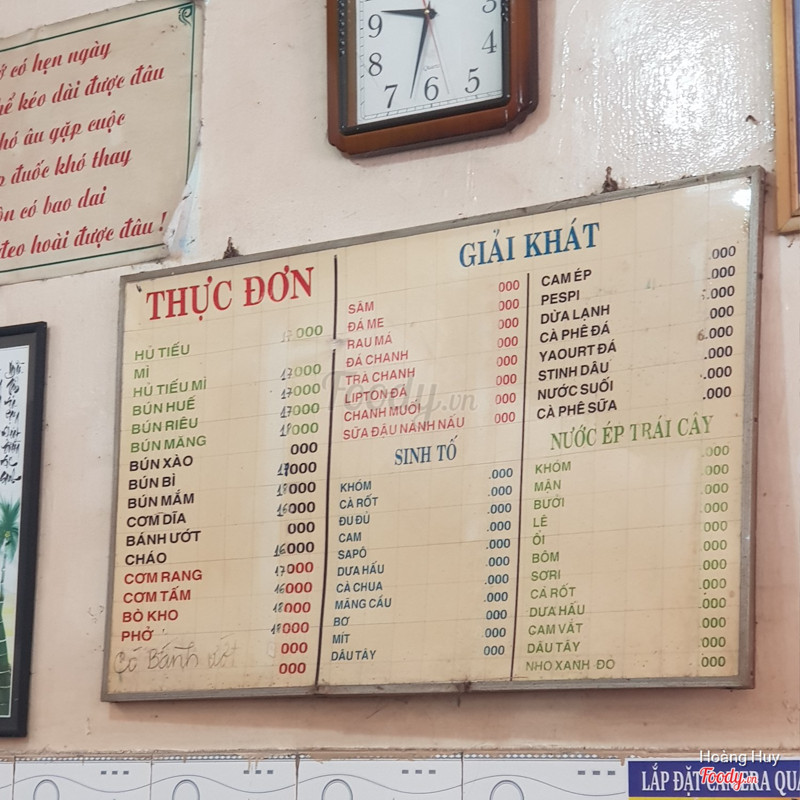 có hẹn ngày
kéo dài được đâu
âu gặp cuộc
đuốc khó thay
có bao dai
đeo hoài được đâu !
9
8
7
6
5
4
3
THỰC ĐƠN
HỦ TIẾU 17000
MÌ
HỦ TIẾU MÌ 17000
BÚN HUẾ 17000
BÚN RIÊU 17000
BÚN MĂNG 18000
BÚN XÀO 000
BÚN BÌ 17000
BÚN MẮM 000
CƠM DĨA 16000
BÁNH ƯỚT 000
CHÁO 16000
CƠM RANG 17000
CƠM TẤM 16000
BÒ KHO 18000
PHỞ 18000
Có Bánh ướt 000
000
GIẢI KHÁT
SÂM 000
ĐÁ ME 000
RAU MÁ 000
ĐÁ CHANH 000
TRÀ CHANH 000
LIPTON ĐÁ 000
CHANH MUỐI 000
SỮA ĐẬU NÀNH NẤU 000
CAM ÉP .000
PESPI .000
DỪA LẠNH .000
CÀ PHÊ ĐÁ .000
YAOURT ĐÁ 6.000
STINH DÂU .000
NƯỚC SUỐI .000
CÀ PHÊ SỮA .000
SINH TỐ
KHÓM .000
CÀ RỐT .000
ĐU ĐỦ .000
CAM .000
SAPÔ .000
DƯA HẤU .000
CÀ CHUA .000
MÃNG CẦU .000
BƠ .000
MÍT 000
DÂU TÂY 000
NƯỚC ÉP TRÁI CÂY
KHÓM .000
MẬN .000
BƯỞI .000
LÊ .000
ỔI .000
BÔM 000
SƠRI 000
CÁ RỐT .000
DƯA HẤU .000
CAM VẮT .000
DÂU TÂY .000
NHO XANH ĐỎ 000
Foody.vn
Hoàng Huy
LẮP ĐẶT CAMERA QUA
Foody.vn